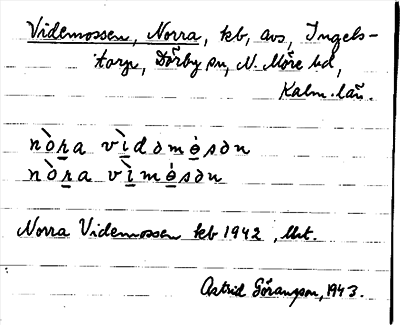 Videmossen, Norra, kb, avs, Ingels-
torp, Dörby sn, N. Möre hd,
Kalm. län.
nòra vìdəmósən
nòra vìmósən
Norra Videmossen kb 1942
Astrid Göransson, 1943.